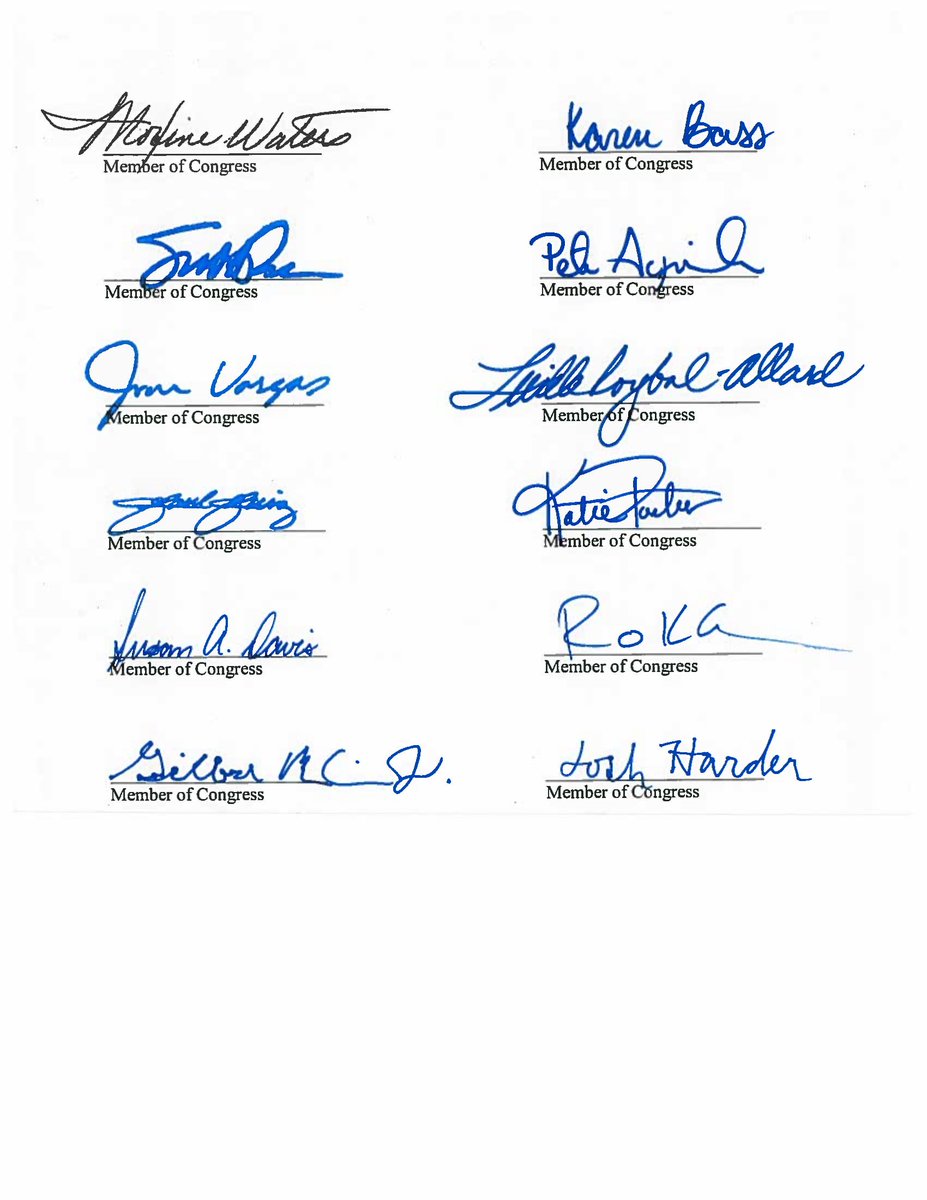 Maxine Waters Karen Bass
Member of Congress Member of Congress
Pete Aguilar
Member of Congress Member of Congress
Juan Vargas Lucille Roybal-Allard
Member of Congress Member of Congress
Katie Porter
Member of Congress Member of Congress
Susan A. Davis Ro K
Member of Congress Member of Congress
Gilbert R C Jr. Josh Harder
Member of Congress Member of Congress